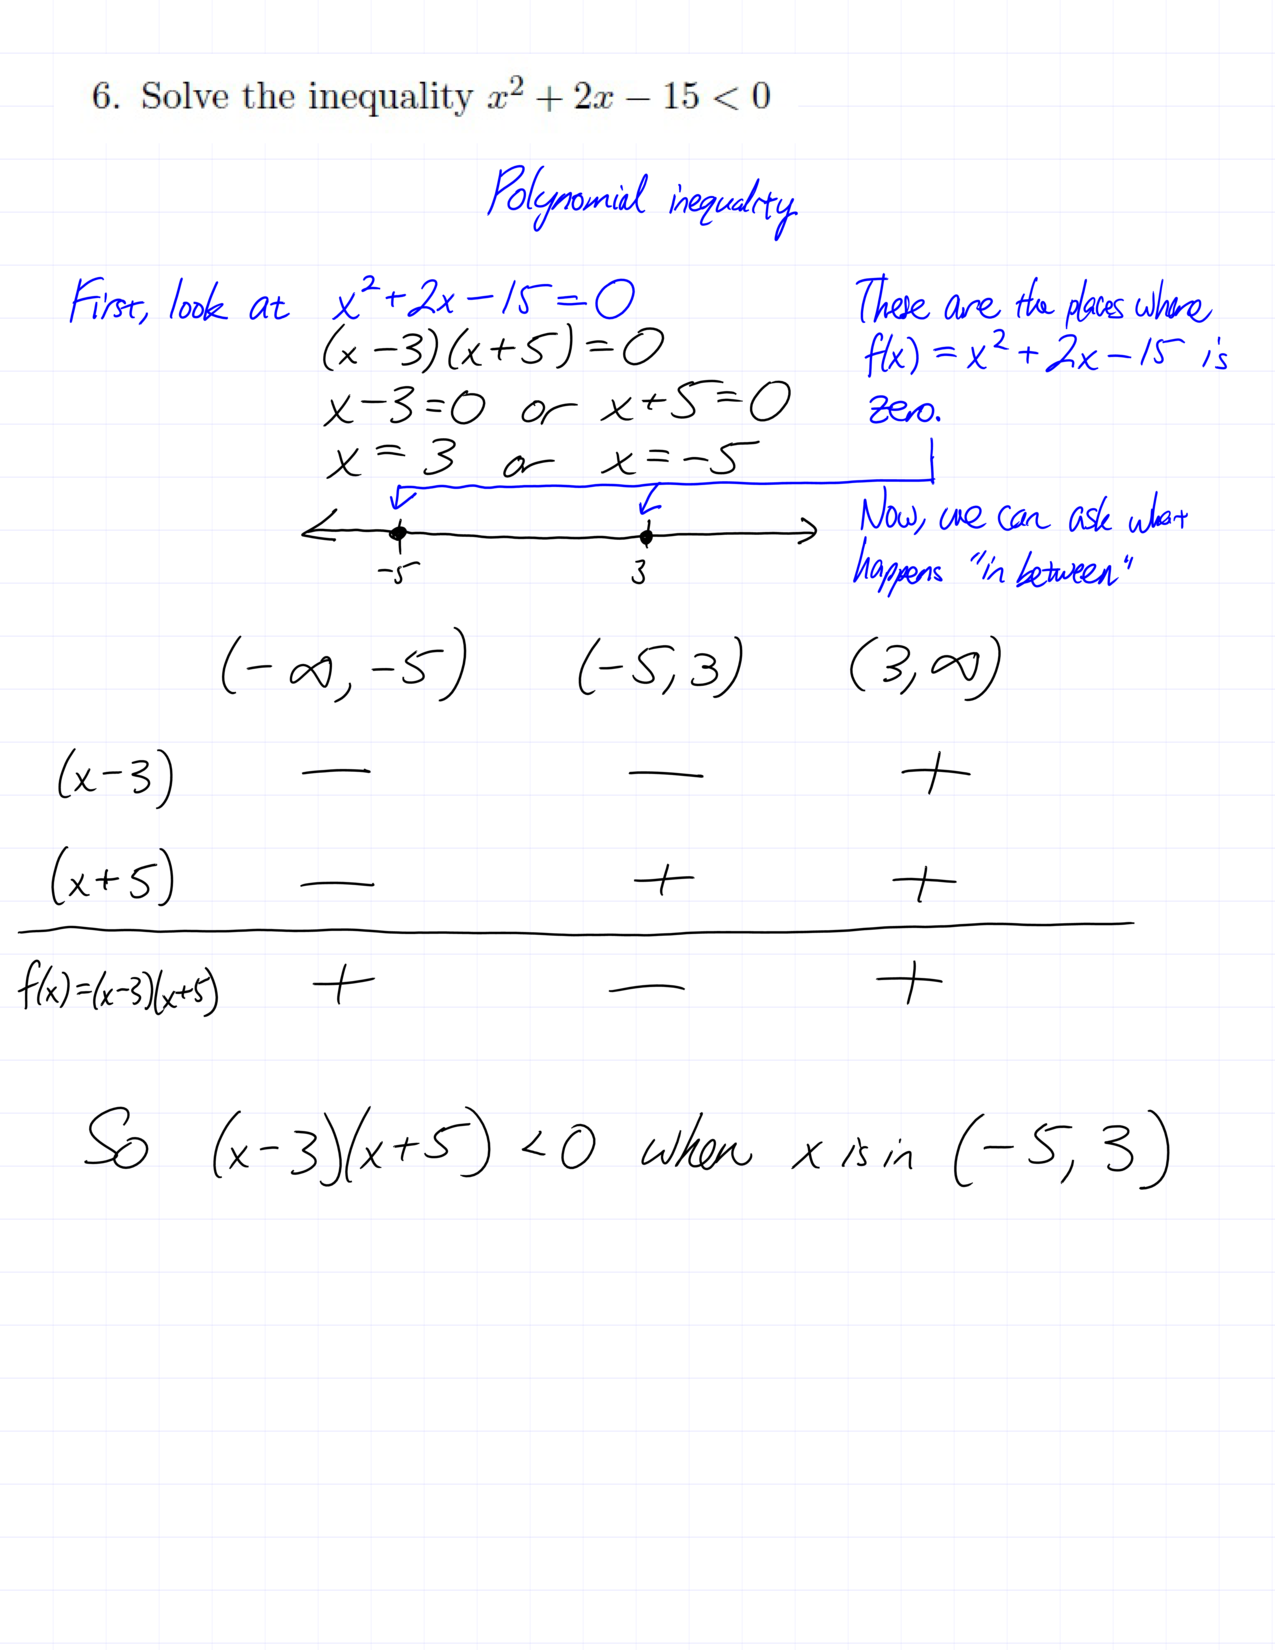 6. Solve the inequality x² + 2x − 15 < 0
Polynomial inequality
First, look at x² + 2x − 15 = 0
(x − 3)(x + 5) = 0
x − 3 = 0 or x + 5 = 0
x = 3 or x = −5
These are the places where
f(x) = x² + 2x − 15 is
zero.
−5 3
Now, we can ask what
happens "in between"
(−∞, −5) (−5, 3) (3, ∞)
(x − 3) − − +
(x + 5) − + +
f(x) = (x − 3)(x + 5) + − +
So (x − 3)(x + 5) < 0 when x is in (−5, 3)